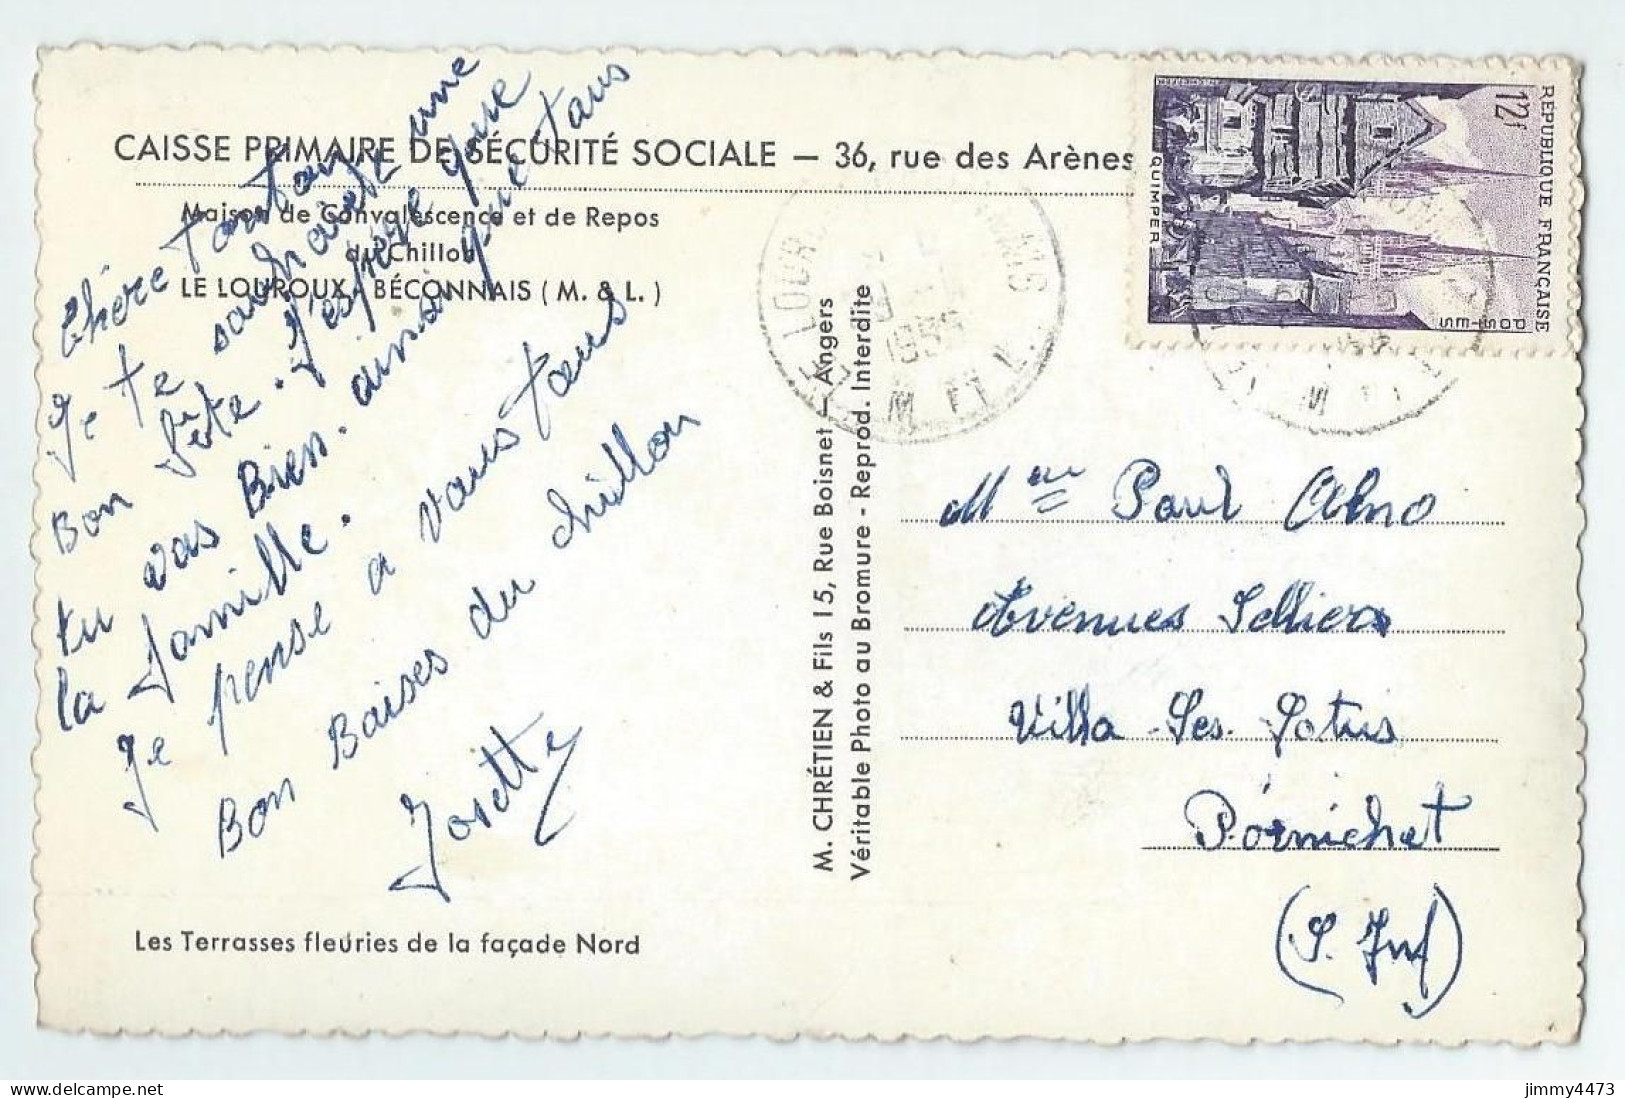 CAISSE PRIMAIRE DE SÉCURITÉ SOCIALE — 36, rue des Arènes
Maison de Convalescence et de Repos
du Chillon
LE LOUROUX - BÉCONNAIS ( M. & L. )
Chère tonton
Je te souhaite une
Bon fête. J'espère que
tu vas Bien. ainsi que tous
la famille.
Je pense a vous tous
Bon Baises du chillon
Josette
Les Terrasses fleuries de la façade Nord
M. CHRÉTIEN & Fils 15, Rue Boisnet — Angers
Véritable Photo au Bromure - Reprod. Interdite
RÉPUBLIQUE FRANÇAISE
12f
QUIMPER
POSTES
M ET L
Paul
Avenues Selliers
Villa Les Lotus
Pornichet
(L. Inf)
jimmy4473